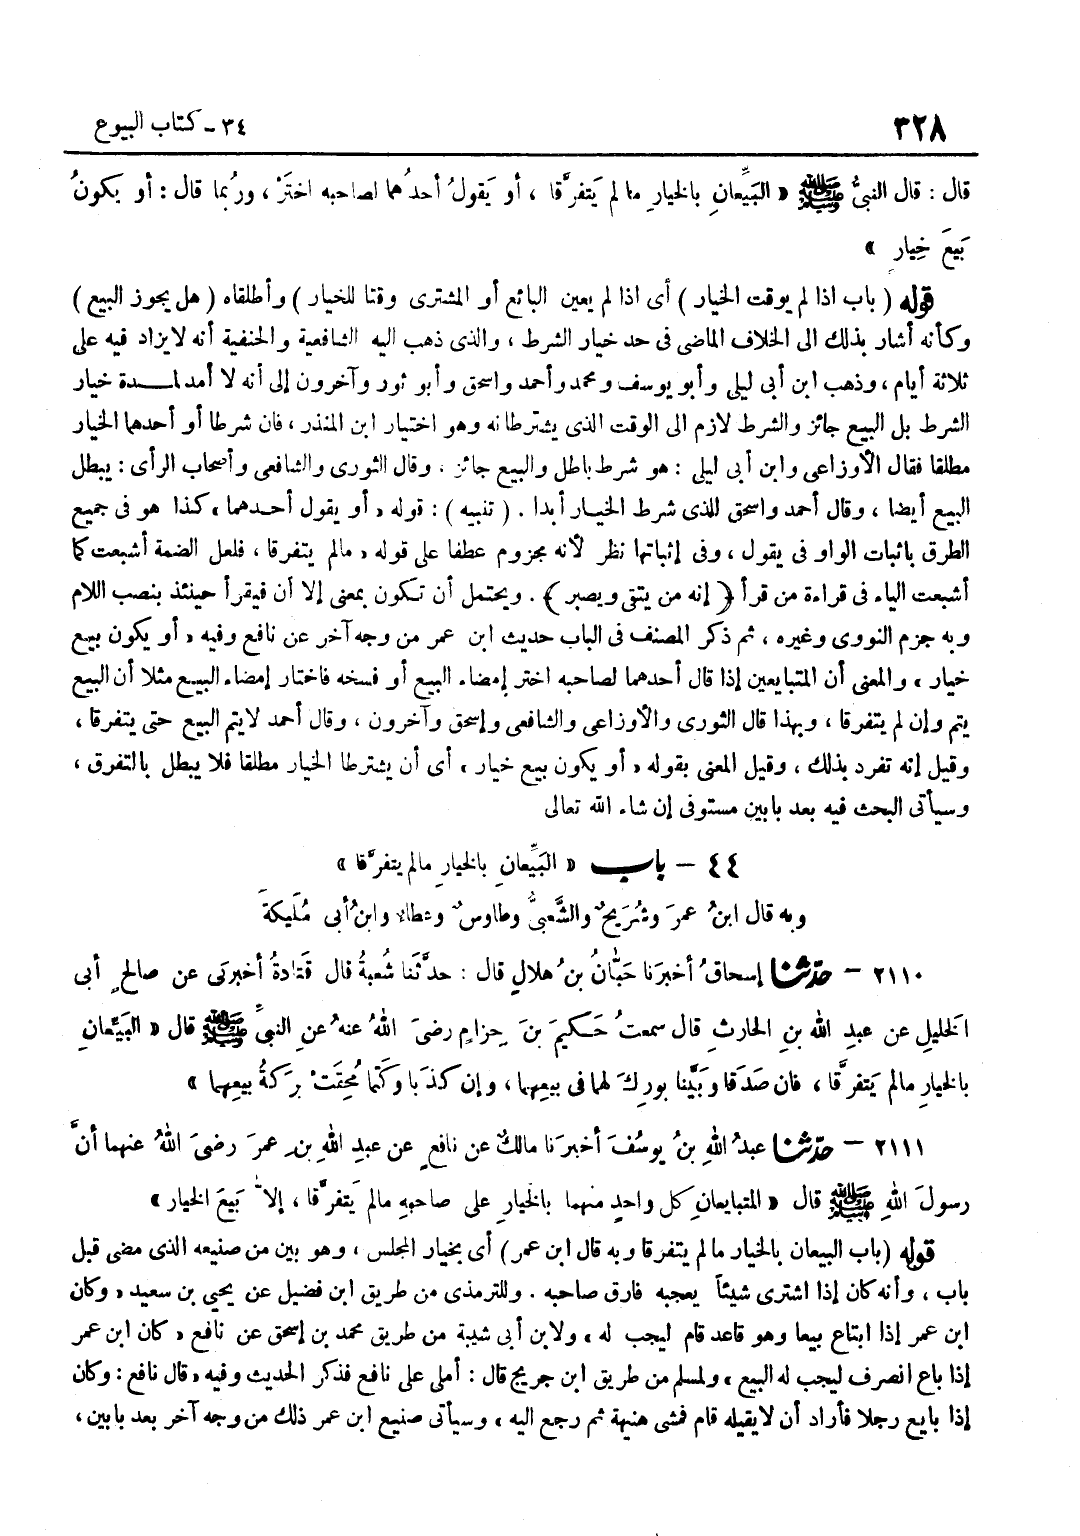 ٣٢٨
٣٤ - كتاب البيوع
قال : قال النبيُّ ﷺ « البَيِّعانِ بالخيارِ ما لم يَتفرَّقا ، أو يَقولُ أحدُهما لصاحبه اختَرْ ، وربُما قال : أو يكونُ
بَيعَ خِيارٍ »
قوله ( باب اذا لم يوقت الخيار ) أى اذا لم يعين البائع أو المشترى وقتا للخيار ) وأطلقاه ( هل يجوز البيع )
وكأنه أشار بذلك الى الخلاف الماضى فى حد خيار الشرط ، والذى ذهب اليه الشافعية والحنفية أنه لا يزاد فيه على
ثلاثة أيام ، وذهب ابن أبى ليلى وأبو يوسف ومحمد وأحمد واسحق وأبو ثور وآخرون إلى أنه لا أمد لمدة خيار
الشرط بل البيع جائز والشرط لازم الى الوقت الذى يشترطانه وهو اختيار ابن المنذر ، فان شرطا أو أحدهما الخيار
مطلقا فقال الأوزاعى وابن أبى ليلى : هو شرط باطل والبيع جائز . وقال الثورى والشافعى وأصحاب الرأى : يبطل
البيع أيضا ، وقال أحمد واسحق للذى شرط الخيار أبدا . ( تنبيه ) : قوله « أو يقول أحدهما » كذا هو فى جميع
الطرق باثبات الواو فى يقول ، وفى إثباتها نظر لأنه مجزوم عطفا على قوله « مالم يتفرقا ، فلعل الضمة أشبعت كما
أشبعت الياء فى قراءة من قرأ ﴿ إنه من يتقى ويصبر ﴾ . ويحتمل أن تكون بمعنى إلا أن فيقرأ حينئذ بنصب اللام
وبه جزم النووى وغيره ، ثم ذكر المصنف فى الباب حديث ابن عمر من وجه آخر عن نافع وفيه « أو يكون بيع
خيار » والمعنى أن المتبايعين إذا قال أحدهما لصاحبه اختر إمضاء البيع أو فسخه فاختار إمضاء البيع مثلا أن البيع
يتم وإن لم يتفرقا ، وبهذا قال الثورى والأوزاعى والشافعى وإسحق وآخرون ، وقال أحمد لا يتم البيع حتى يتفرقا ،
وقيل إنه تفرد بذلك ، وقيل المعنى بقوله « أو يكون بيع خيار » أى أن يشترطا الخيار مطلقا فلا يبطل بالتفرق ،
وسيأتى البحث فيه بعد بابين مستوفى إن شاء الله تعالى
٤٤ - باب « البَيِّعانِ بالخيارِ مالم يتفرَّقا »
وبه قال ابنُ عمرَ وشُرَيحٌ والشَّعبىُّ وطاوسٌ وعطاء وابنُ أبى مُلَيكةَ
٢١١٠ - حدّثنا إسحاقُ أخبرَنا حَبّانُ بنُ هلالٍ قال : حدَّثَنا شُعبةُ قال قَتادةُ أخبرَنى عن صالحٍ أبى
الخليلِ عن عبدِ الله بنِ الحارثِ قال سمعتُ حَكيمَ بنَ حِزامٍ رضىَ اللهُ عنهُ عنِ النبىِّ ﷺ قال « البَيِّعانِ
بالخيارِ مالم يَتفرَّقا ، فان صَدَقا وبَيَّنا بورِكَ لهما فى بيعِهما ، وإن كذَبا وكَتَما مُحِقَتْ بَركةُ بيعِهما »
٢١١١ - حدّثنا عبدُ اللهِ بنُ يوسُفَ أخبرَنا مالكٌ عن نافعٍ عن عبدِ اللهِ بنِ عمرَ رضىَ اللهُ عنهما أنَّ
رسولَ اللهِ ﷺ قال « المتبايعانِ كل واحدٍ منهما بالخيارِ على صاحبهِ مالم يَتفرَّقا ، إلاَّ بَيعَ الخيار »
قوله ( باب البيعان بالخيار ما لم يتفرقا وبه قال ابن عمر ) أى بخيار المجلس ، وهو بين من صنيعه الذى مضى قبل
باب ، وأنه كان إذا اشترى شيئاً يعجبه فارق صاحبه . وللترمذى من طريق ابن فضيل عن يحيى بن سعيد « وكان
ابن عمر إذا ابتاع بيعا وهو قاعد قام ليجب له » ولابن أبى شيبة من طريق محمد بن إسحق عن نافع « كان ابن عمر
إذا باع انصرف ليجب له البيع » ولمسلم من طريق ابن جريج قال : أملى على نافع فذكر الحديث وفيه « قال نافع : وكان
إذا بايع رجلا فأراد أن لا يقيله قام فمشى هنيهة ثم رجع اليه » وسيأتى صنيع ابن عمر ذلك من وجه آخر بعد بابين ،